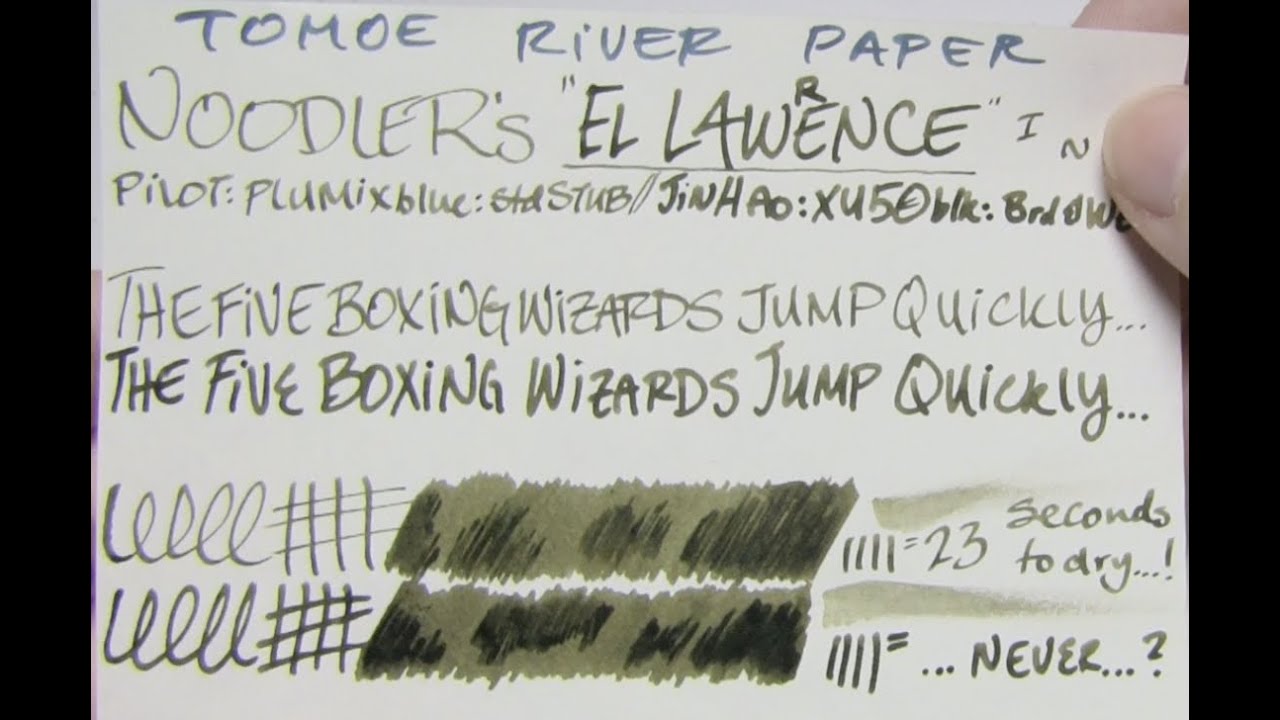 TOMOE RiVER PAPER
NOODLER's "EL LAWRENCE" I N
PiLOT: PLUMiXblue: std STUB// JiNHAo: X450 blk: Brd
THE FiVE BOXiNG WiZARDS JUMP QUiCKLY...
THE FiVE BOXiNG WiZARDS JUMP QUiCKLY...
= 23 seconds
to dry...!
= ... NEVER...?